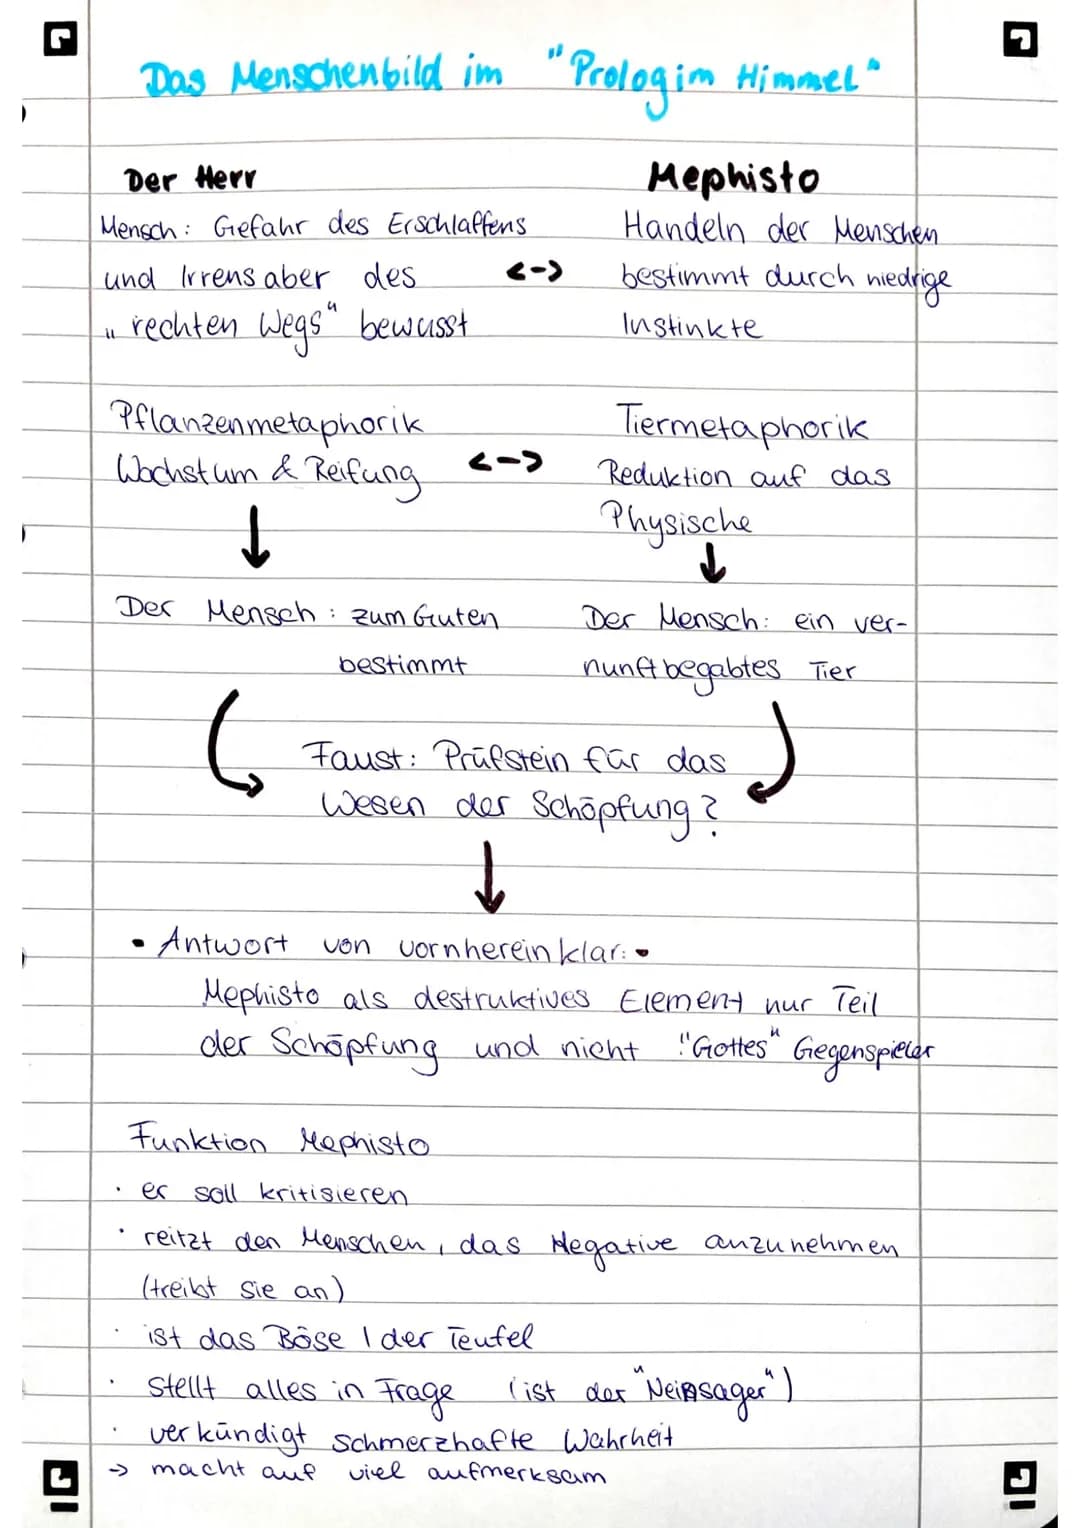 Das Menschenbild im "Prolog im Himmel"
Der Herr
Mensch: Gefahr des Erschlaffens
und Irrens aber des
"rechten Wegs" bewusst
<->
Mephisto
Handeln der Menschen
bestimmt durch niedrige
Instinkte
Pflanzenmetaphorik
Wachstum & Reifung
<->
Tiermetaphorik
Reduktion auf das
Physische
↓
↓
Der Mensch: zum Guten
bestimmt
Der Mensch: ein ver-
nunftbegabtes Tier
Faust: Prüfstein für das
Wesen der Schöpfung?
↓
• Antwort von vornherein klar: •
Mephisto als destruktives Element nur Teil
der Schöpfung und nicht "Gottes" Gegenspieler
Funktion Mephisto
· er soll kritisieren
· reitzt den Menschen, das Negative anzunehmen
(treibt sie an)
· ist das Böse / der Teufel
· stellt alles in Frage (ist der "Neinsager")
· verkündigt schmerzhafte Wahrheit
→ macht auf viel aufmerksam